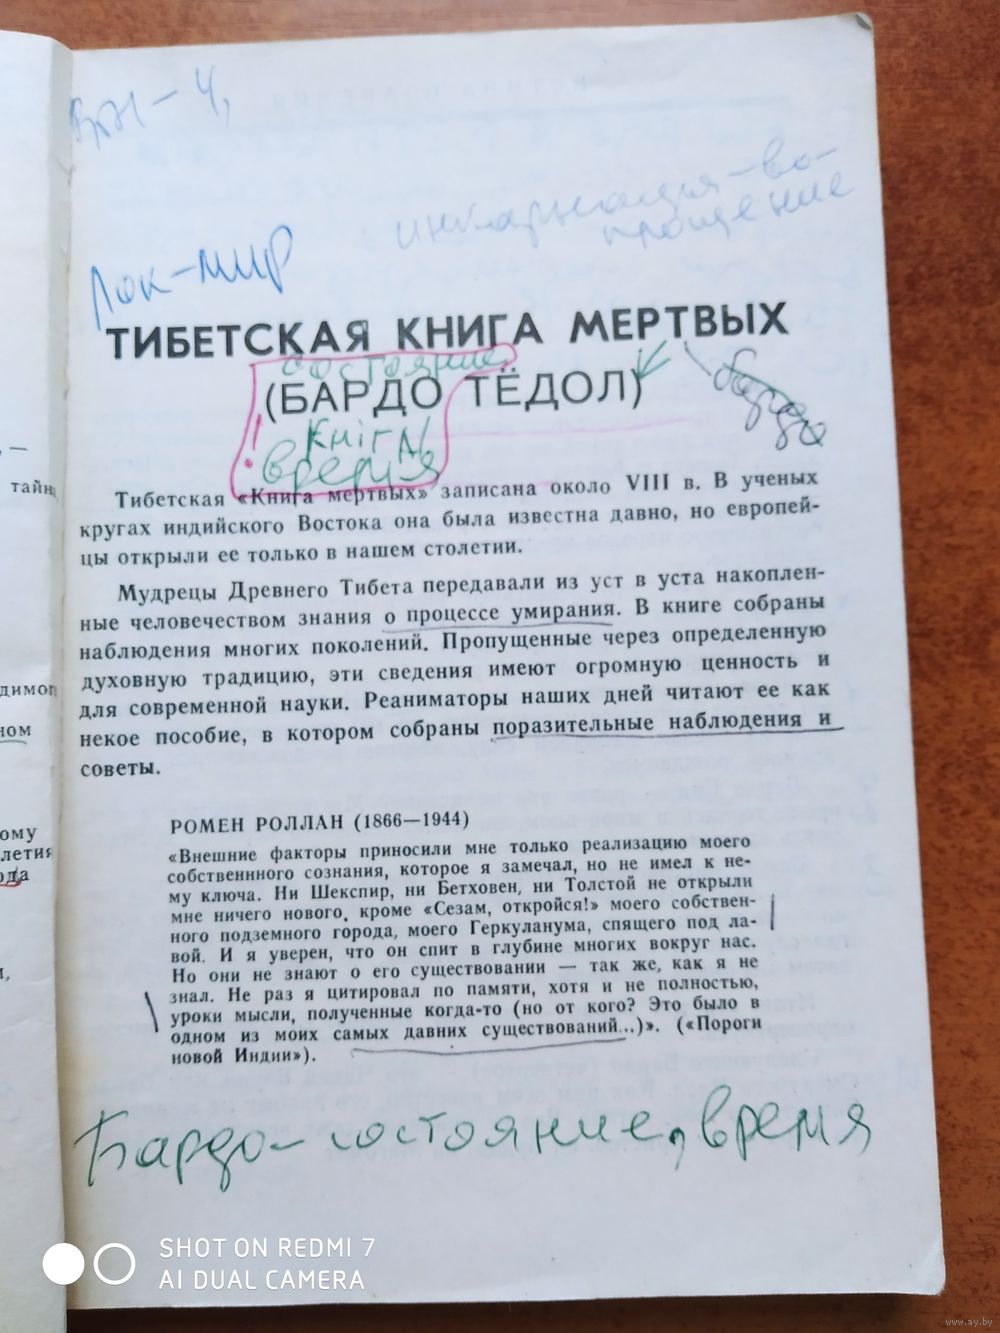 Лок-мир
инкарнация-во-
площение
ТИБЕТСКАЯ КНИГА МЕРТВЫХ
состояние
(БАРДО ТЁДОЛ)
бардо
кнігі
время
Тибетская «Книга мертвых» записана около VIII в. В ученых
кругах индийского Востока она была известна давно, но европей-
цы открыли ее только в нашем столетии.
Мудрецы Древнего Тибета передавали из уст в уста накоплен-
ные человечеством знания о процессе умирания. В книге собраны
наблюдения многих поколений. Пропущенные через определенную
духовную традицию, эти сведения имеют огромную ценность и
для современной науки. Реаниматоры наших дней читают ее как
некое пособие, в котором собраны поразительные наблюдения и
советы.
РОМЕН РОЛЛАН (1866—1944)
«Внешние факторы приносили мне только реализацию моего
собственнного сознания, которое я замечал, но не имел к не-
му ключа. Ни Шекспир, ни Бетховен, ни Толстой не открыли
мне ничего нового, кроме «Сезам, откройся!» моего собствен-
ного подземного города, моего Геркуланума, спящего под ла-
вой. И я уверен, что он спит в глубине многих вокруг нас.
Но они не знают о его существовании — так же, как я не
знал. Не раз я цитировал по памяти, хотя и не полностью,
уроки мысли, полученные когда-то (но от кого? Это было в
одном из моих самых давних существований...)». («Пороги
новой Индии»).
Бардо-состояние, время
SHOT ON REDMI 7
AI DUAL CAMERA
www.ay.by